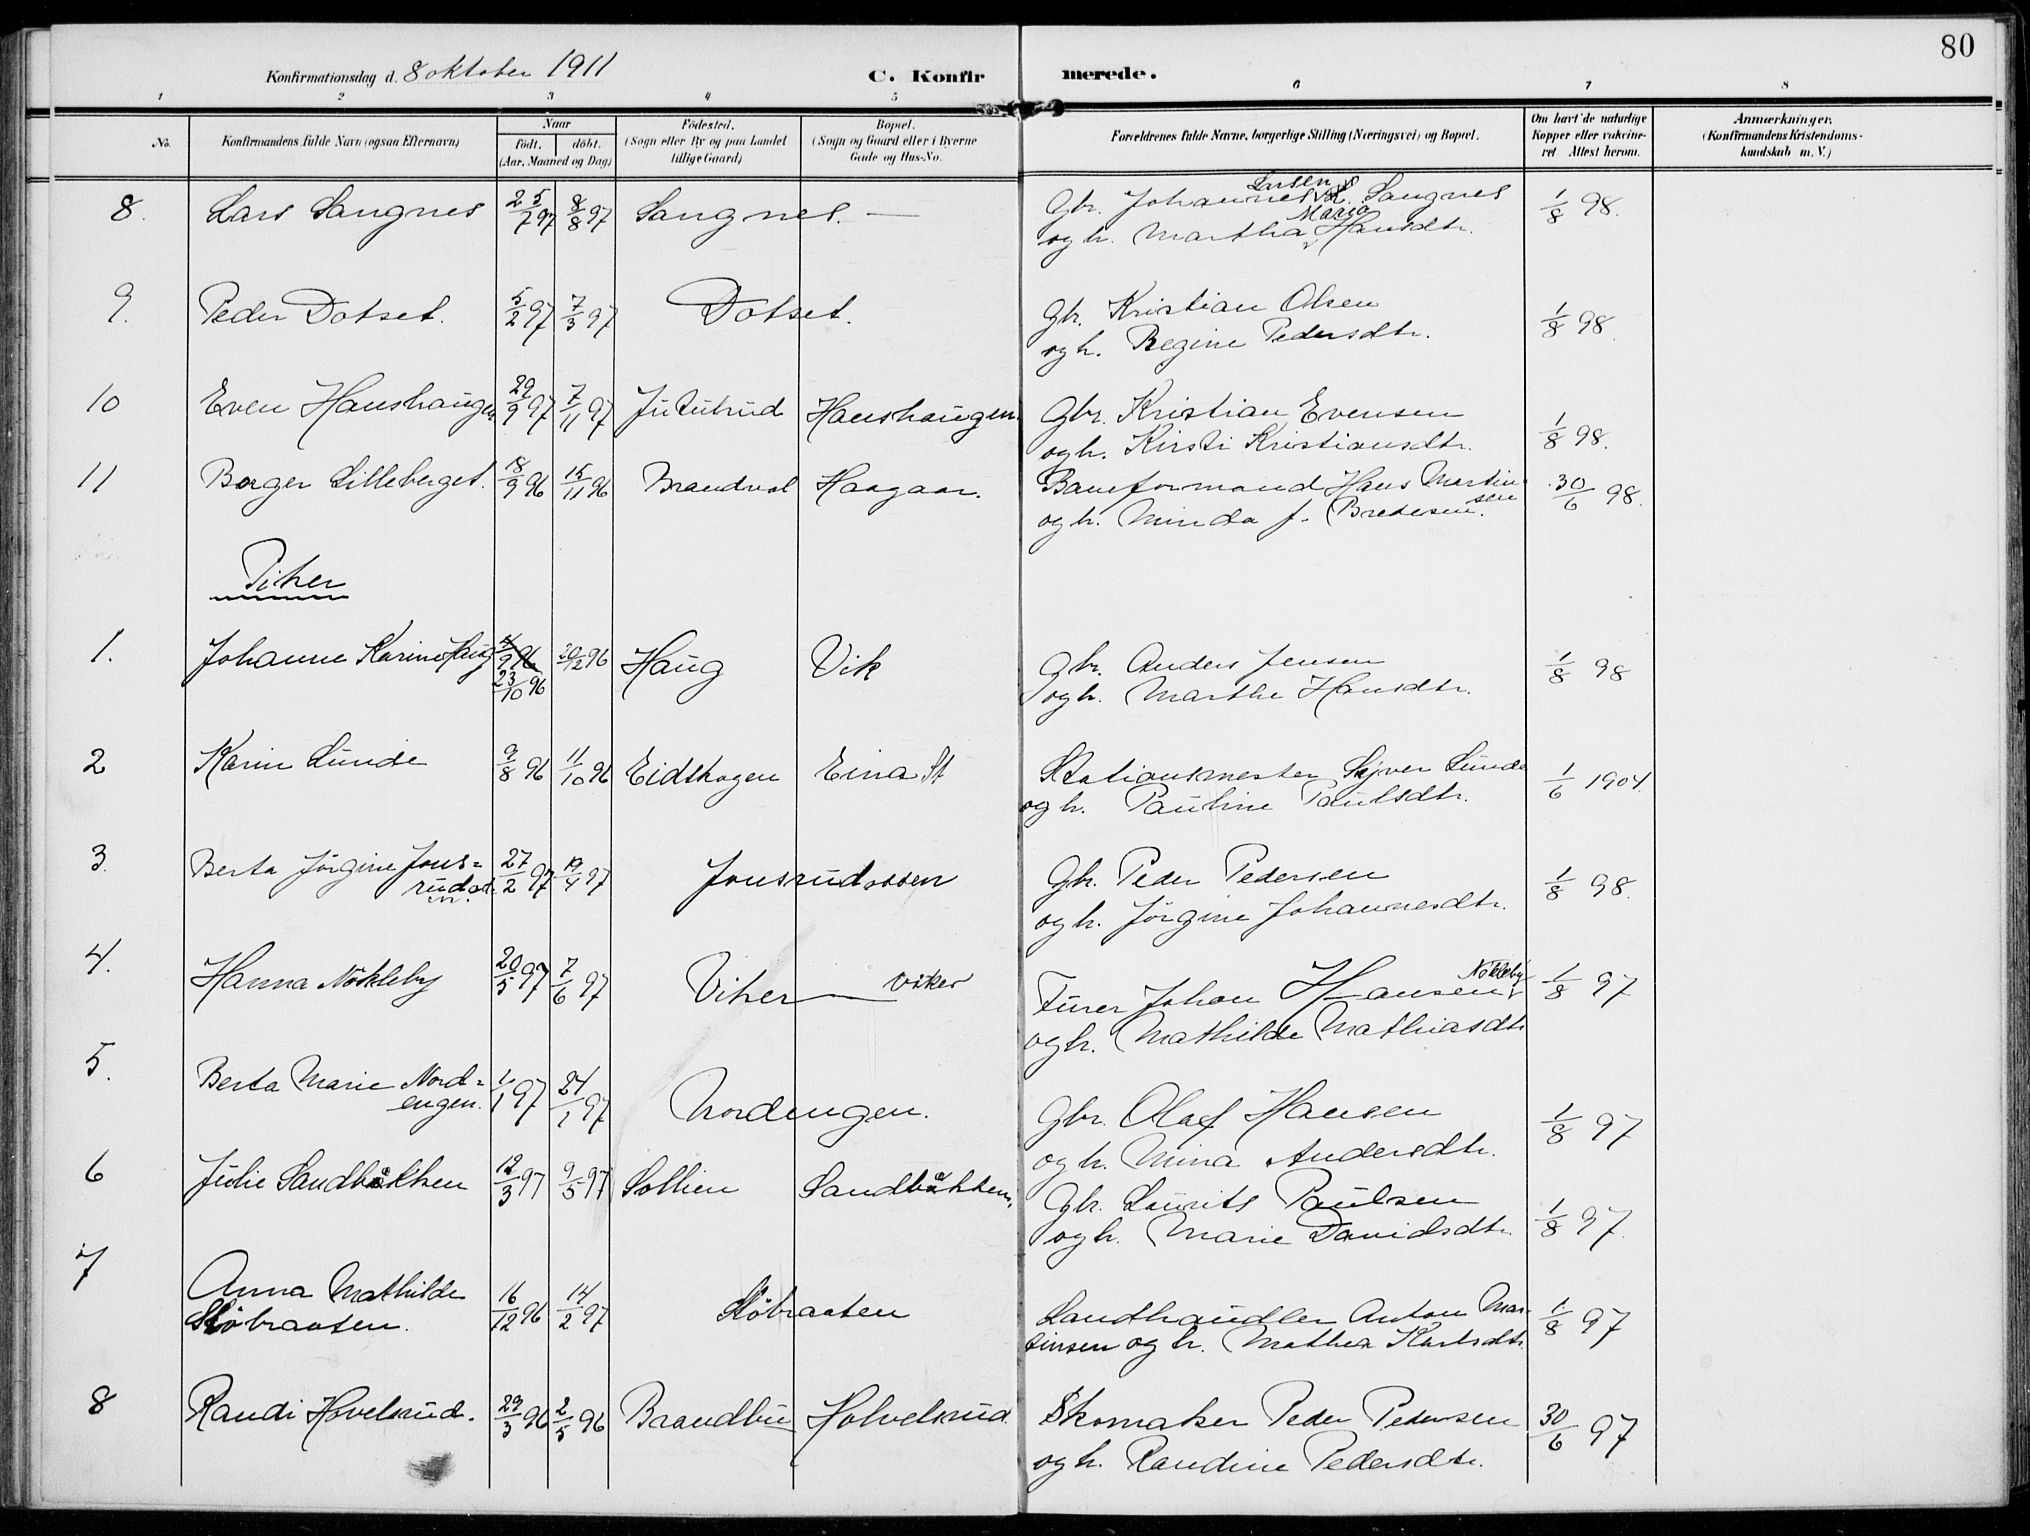 80
Konfirmationsdag d. 8 oktober 1911 C. Konfirmerede.
1 2 3 4 5 6 7 8
No. Konfirmandens fulde Navn (ogsaa Efternavn) Naar født. døbt. (Aar, Maaned og Dag) Fødested. (Sogn eller By og paa Landet tillige Gaard) Bopæl. (Sogn og Gaard eller i Byerne Gade og Hus-No. Forældrenes fulde Navne, borgerlige Stilling (Næringsvei) og Bopæl. Om havt de naturlige Kopper eller vakcineret Attest herom. Anmærkninger. (Konfirmandens Kristendomskundskab m. V.)
8. Lars Sangnes 25/7 97 8/8 97 Sangnes. — Gbr. Johannes Larsen Sangnes 1/8 98.
og h. Martha Maria Hansdtr.
9. Peder Dotset. 5/2 97 7/3 97 Dotset. Gbr. Kristian Olsen 1/8 98.
og h. Regine Pedersdtr.
10 Even Haushaugen 29/9 97 7/11 97 Jutulrud Haushaugen. Gbr. Kristian Evensen 1/8 98.
og h. Kirsti Kristiansdtr.
11 Borger Lilleberget. 18/9 96 15/11 96 Brandval Haagaar. Baneformand Hans Martinsen 30/6 98.
og h. Minda f. Bredesen.
Piker
1. Johanne Karine Haug 23/10 96 20/12 96 Haug Vik Gbr. Anders Jensen 1/8 98
og h. Marthe Hansdtr.
2 Karin Lunde 9/8 96 11/10 96 Eidskogen Eina St Stationsmester Syver Lunde 1/6 1904.
og h. Pauline Paulsdtr.
3. Berta Jørgine Jons= 27/2 97 19/4 97 Jonsrudssæen Gbr. Peder Pedersen 1/8 98.
og h. Jørgine Johannesdtr.
4. Hanna Nökleby 20/5 97 7/6 97 Viker — Viker Furer Johan Hansen Nökleby 1/8 97
og h. Mathilde Mathiasdtr
5. Berta Marie Nord= 1/1 97 24/1 97 Nordengen. Gbr. Olaf Hansen 1/8 97
engen. og h. Mina Andersdtr.
6 Julie Sandbakken 12/3 97 9/5 97 Sollien Sandbakken. Gbr. Laurits Paulsen 1/8 97.
og h. Marie Davidsdtr.
7 Anna Mathilde 16/12 96 14/2 97 Støbraaten Landhandler Anton Mar- 1/8 97
Støbraaten. tinsen og h. Mathea Karlsdtr.
8 Randi Hovelsrud. 29/3 96 2/5 96 Brandbu Holvelsrud Skomaker Peder Pedersen 30/6 97
og h. Randine Pedersdtr.